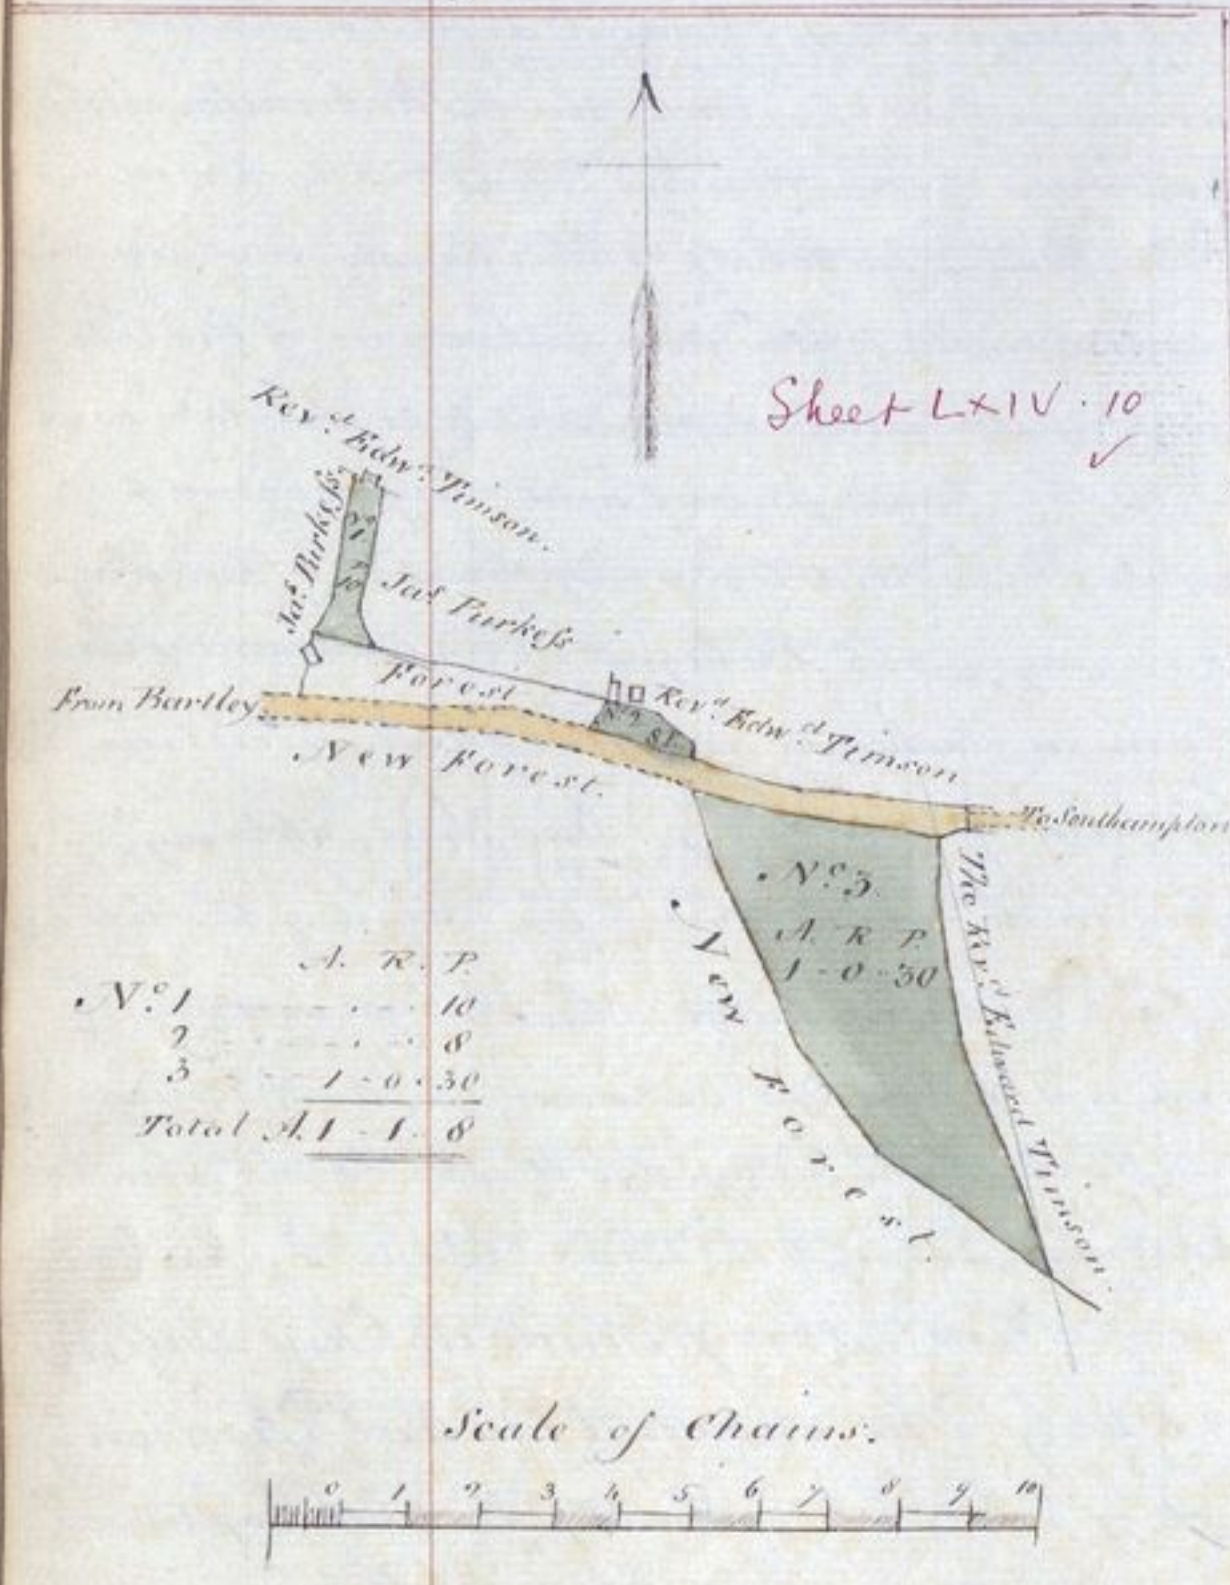 Sheet LXIV . 10
Rev.d Edw.d Timson.
Jas. Purkess
No 1
P
10
Jas. Purkess
Forest
From Bartley
Rev.d Edw.d Timson
No 2
8 P.
New Forest.
To Southampton
No. 3.
A. R. P.
1 - 0 - 30
The Rev.d Edward Timson.
New Forest.
A. R. P.
No. 1 - - - . - - 10
2 - - - . - . 8
3 - - 1 - 0 - 30
Total A. 1 - 1 - 8
Scale of Chains.
0 1 2 3 4 5 6 7 8 9 10